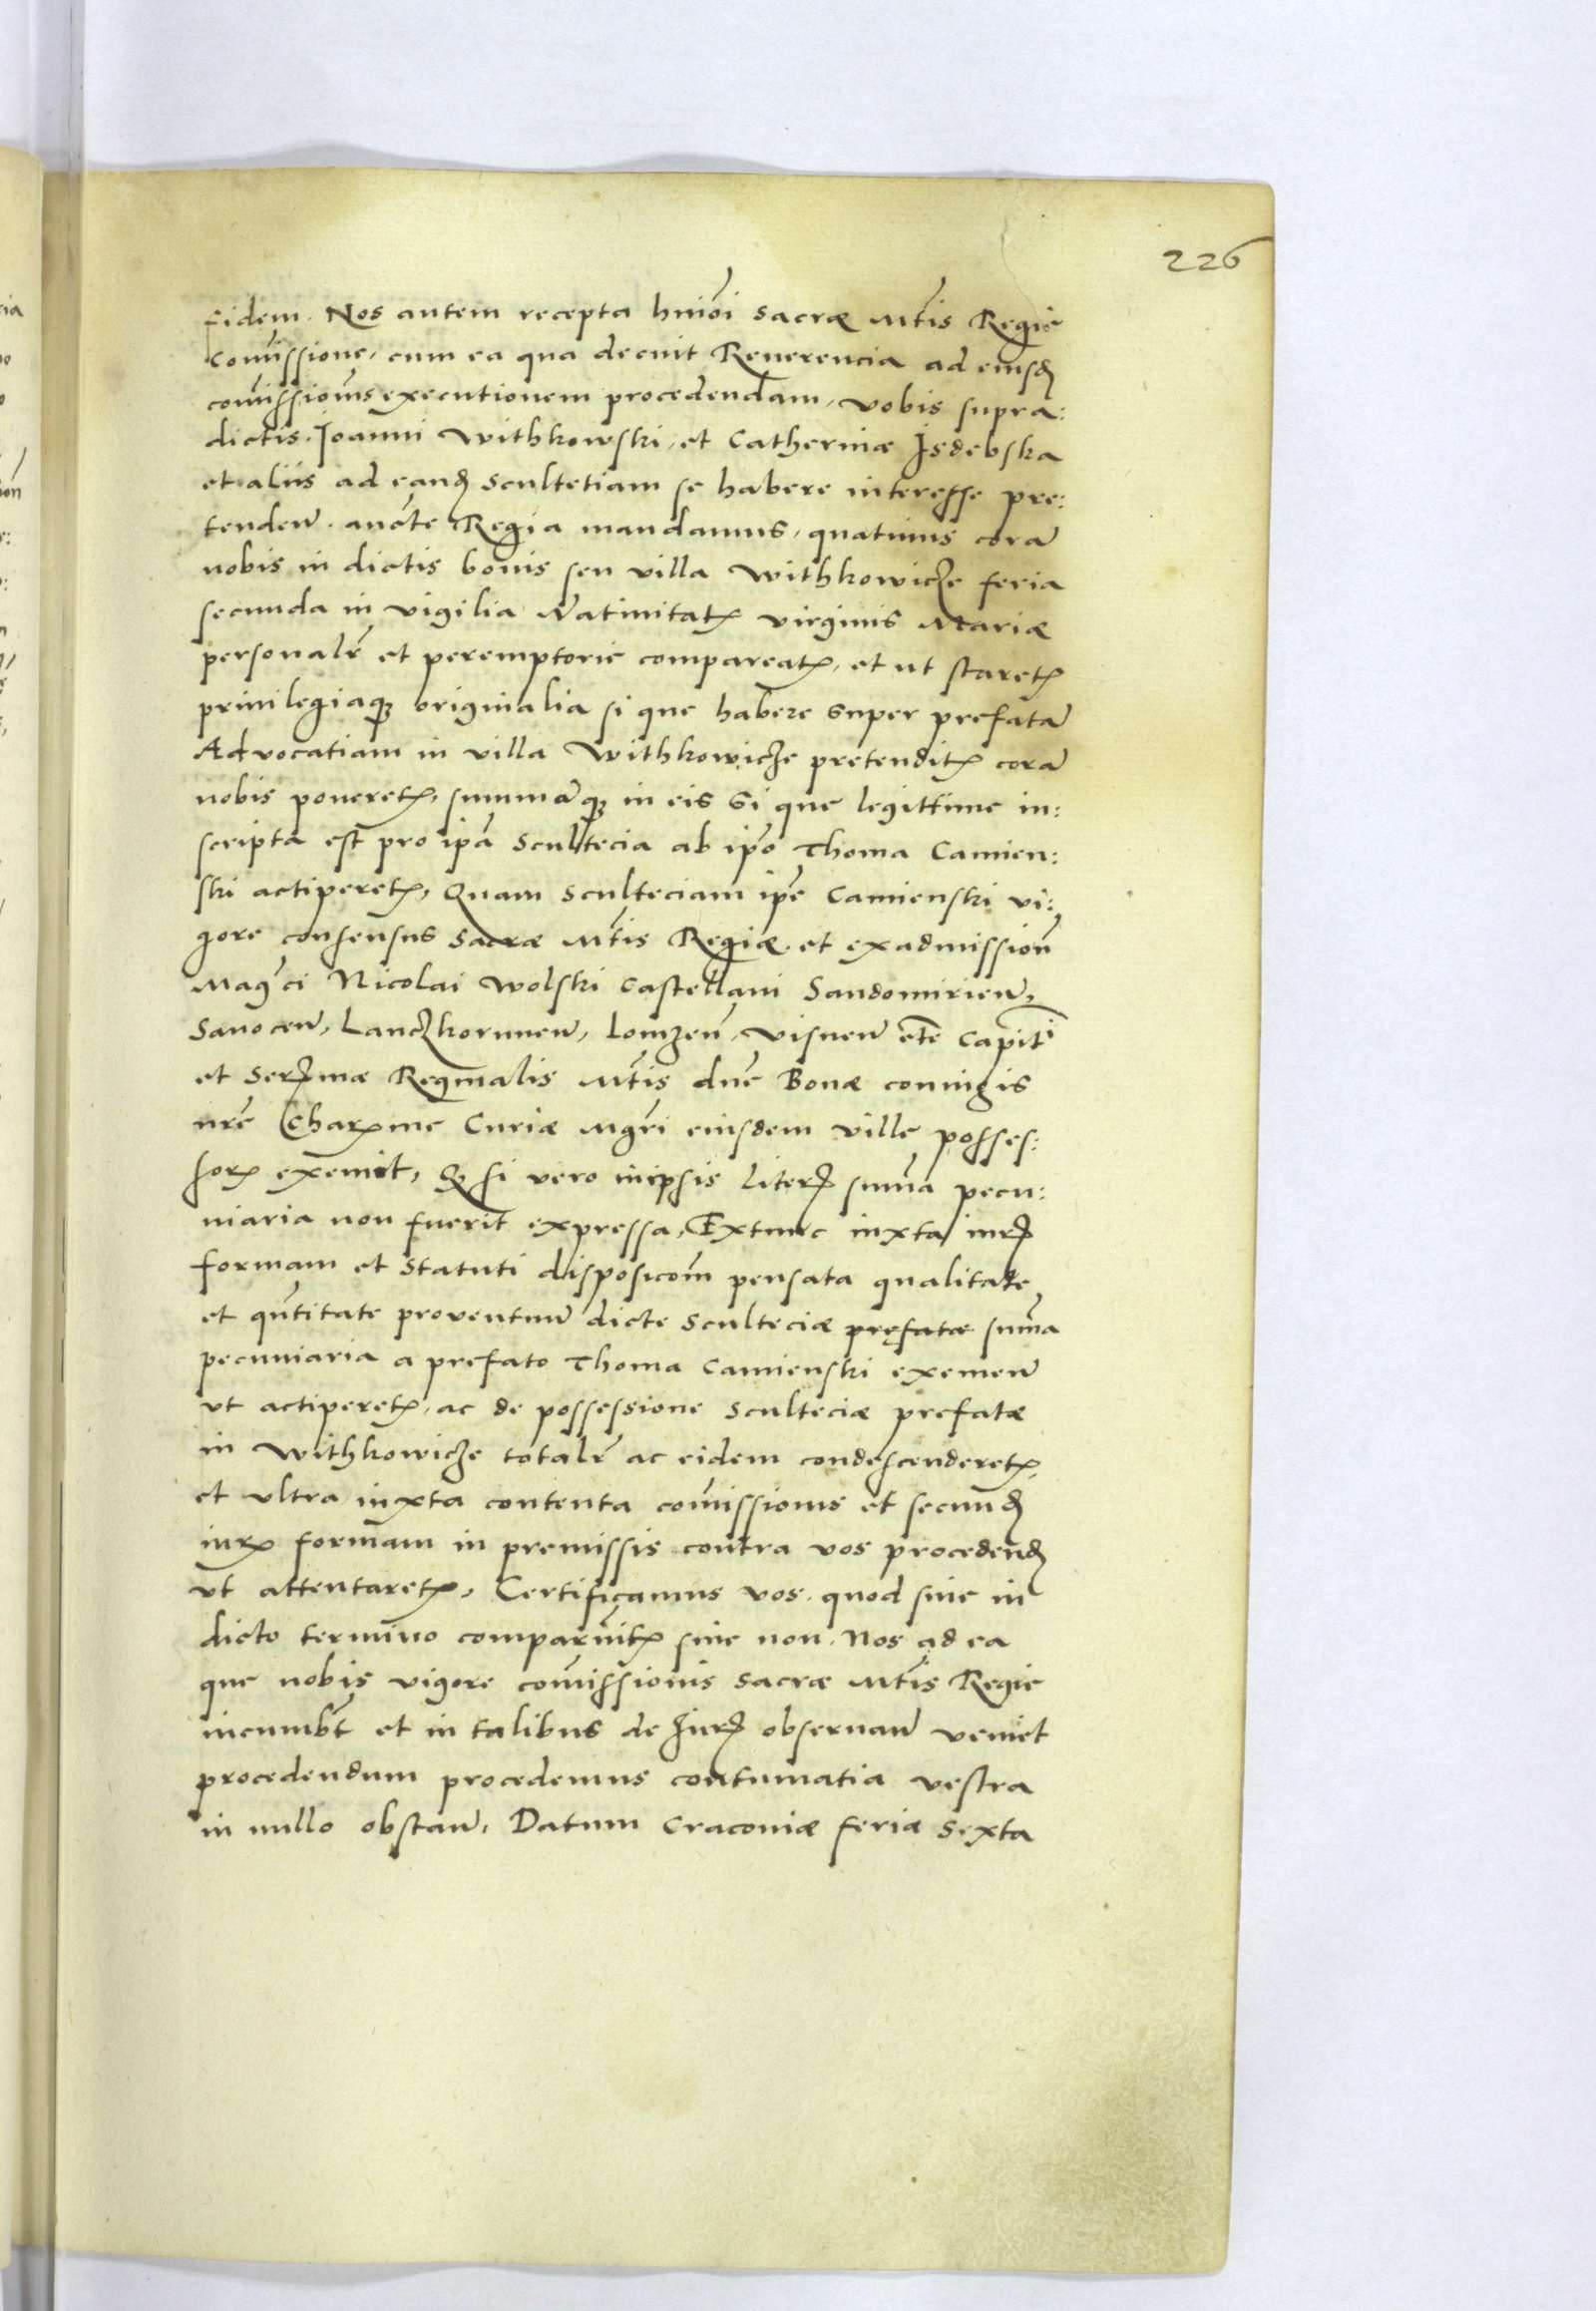 226
fidem. Nos autem recepta hmoi͂ Sacræ Mtis̃ Regie
Com̃issione, cum ea qua decuit Reuerencia ad eiusd
com̃issionis executionem procedendam, vobis supra:
dictis. Ioanni Withkowski, et Catherinæ Isdebska
et aliis ad eand Scultetiam se habere interesse pre:
tenden̄. aucte͂ Regia mandamus, quatinus corā
nobis in dictis bonis seu villa Withkowicze feria
secunda in vigilia Natiuitatꝭ virginis Mariæ
personalr̃ et peremptorie compareatꝭ, et ut staretꝭ
priuilegiaqꝫ originalia si que habere super prefatā
Aduocatiam in villa Withkowicze pretenditꝭ corā
nobis poneretꝭ, summāqꝫ in eis si que legittime in:
scripta est pro ip̃a Scultecia ab ip̃o Thoma Camien:
ski actiperetꝭ, Quam Sculteciam ip̃e Camienski vi:
gore consensus Sacræ Mtis̃ Regiæ. et ex admission̄
Mag̃ci Nicolai Wolski Castellani Sandomirien̄,
Sanocen̄, Lanczkorunen̄, Lomzen̄, Visnen̄ etc̃ Capit̃i
et Serꝭmæ Reginalis Mtis̃ dn̄e Bonæ coniugis
nr̃e Charꝭme Curiæ Mgr̃i eiusdem ville posses:
sorꝭ exemit, Qꝫ si vero in ipsis literꝭ sum̃a pecu:
niaria non fuerit expressa, Extunc iuxta iurꝭ
formam et Statuti disposicom̃ pensata qualitate
et qñtitate prouentuū dicte Sculteciæ prefatæ sum̃a
pecuniaria a prefato Thoma Camienski exemen̄
vt actiperetꝭ, ac de possessione Sculteciæ prefatæ
in Withkowicze totalr̃ ac eidem condescenderetꝭ,
et vltra iuxta contenta com̃issionis et secund
iurꝭ formam in premissis contra vos procedend
vt attentaretꝭ, Certificamus vos. quod siue in
dicto termino comparuitꝭ siue non. Nos ad ea
que nobis vigore com̃issionis Sacræ Mtis̃ Regie
incumbt̃ et in talibus de Iurꝭ obseruan̄ veniet
procedendum procedemus contumatia vestra
in nullo obstan̄, Datum Cracouiæ feria Sexta